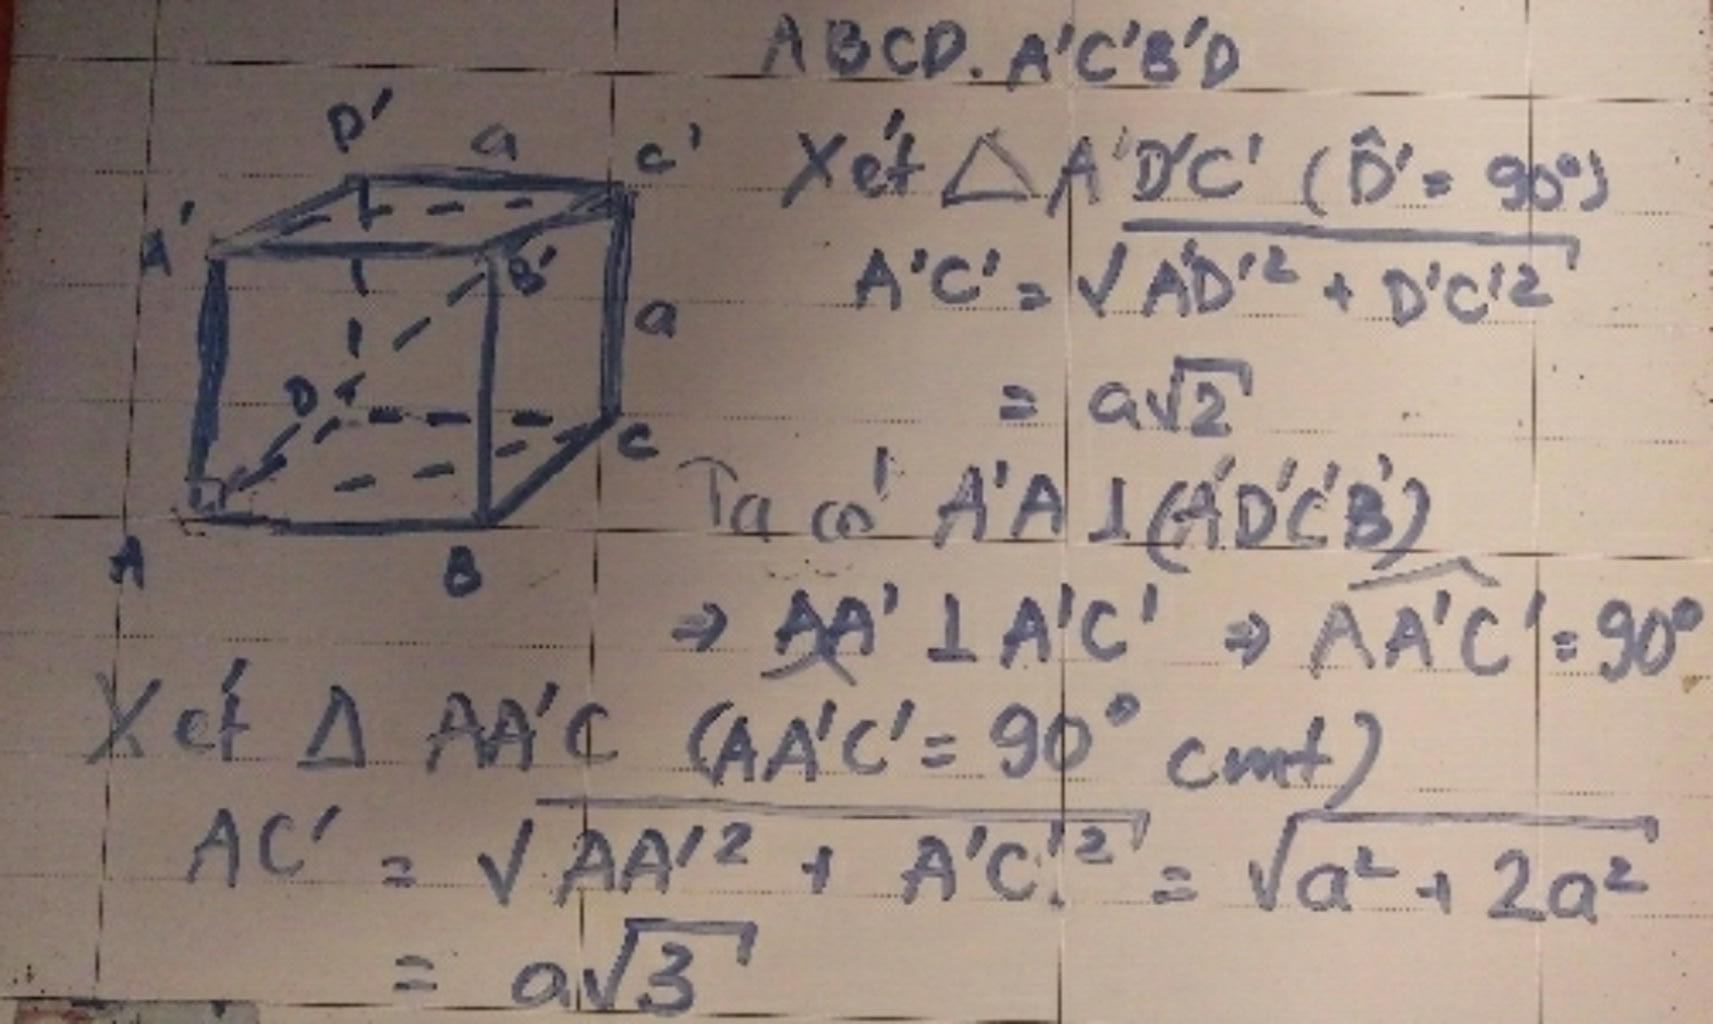 ABCD.A'C'B'D
D' a C'
A' B' a
D C
A B
Xét △ A'D'C' (D̂' = 90°)
A'C' = √A'D'² + D'C'²
= a√2
Ta có A'A ⊥ (A'D'C'B')
⇒ AA' ⊥ A'C' ⇒ AA'C' = 90°
Xét △ AA'C (AA'C' = 90° cmt)
AC' = √AA'² + A'C'² = √a² + 2a²
= a√3